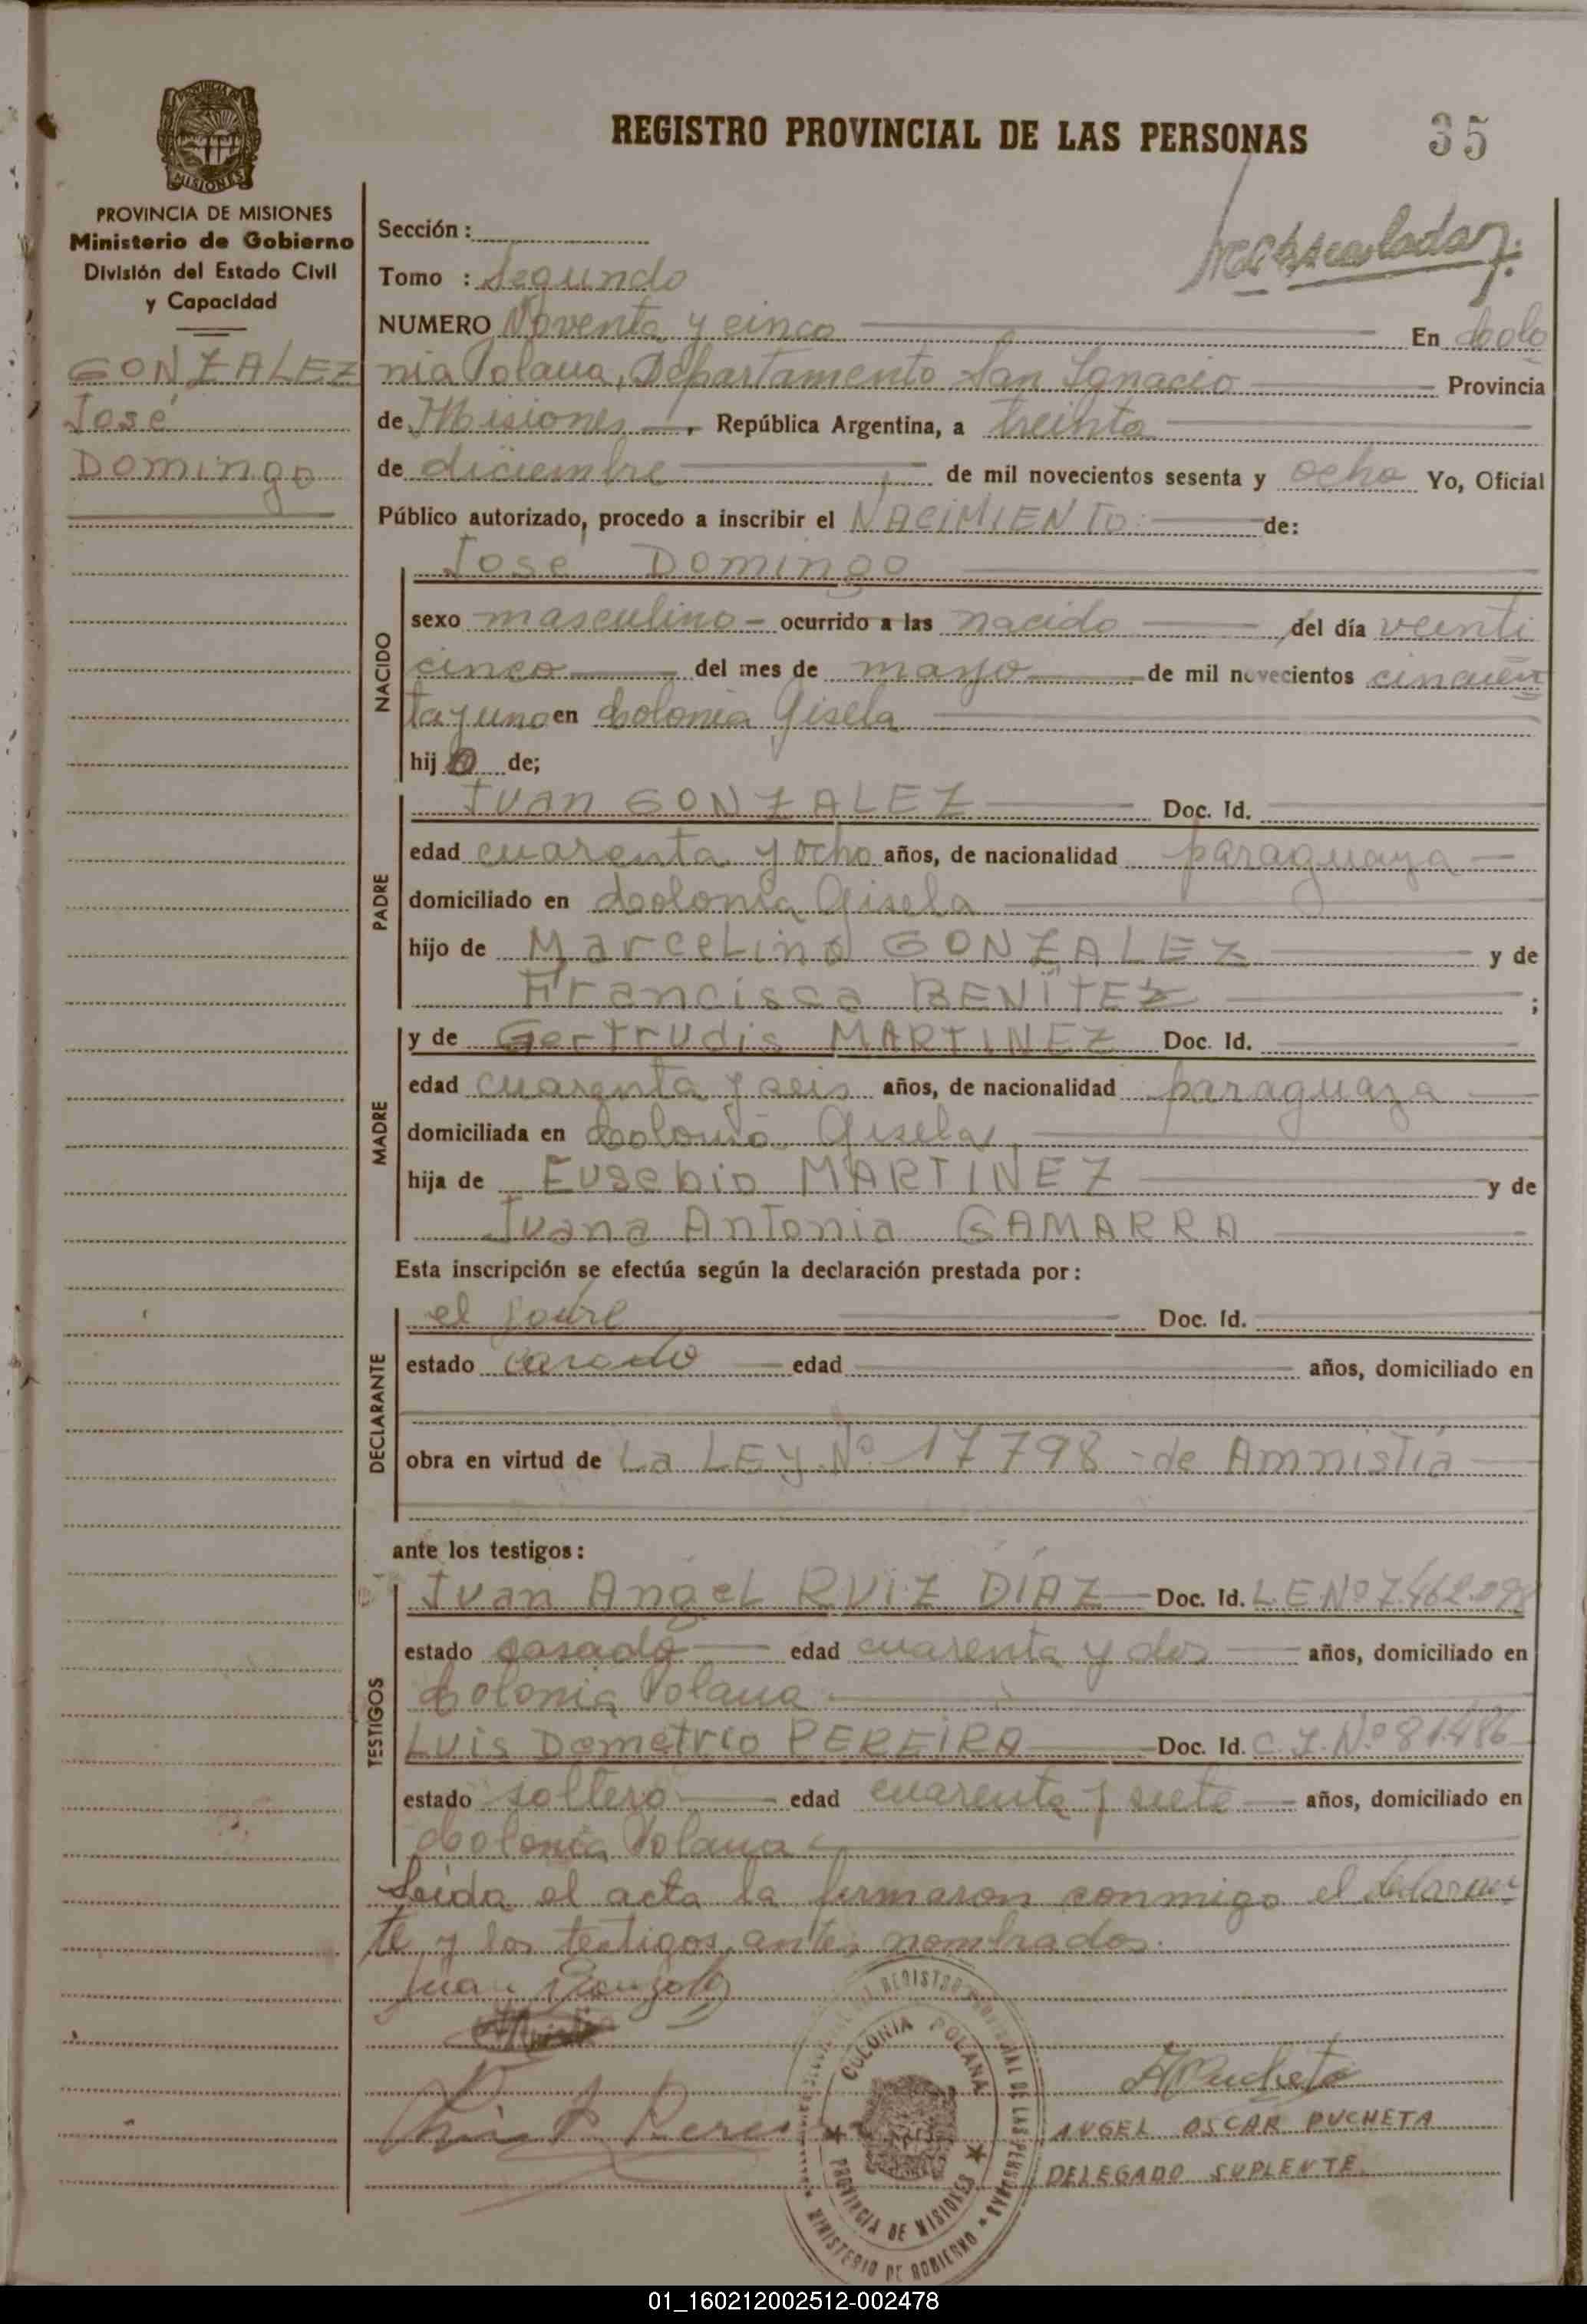 REGISTRO PROVINCIAL DE LAS PERSONAS
35
MISIONES
PROVINCIA DE MISIONES
Ministerio de Gobierno
División del Estado Civil
y Capacidad
GONZALEZ
José
Domingo
Sección :
Tomo : Segundo
NUMERO Noventa y cinco En Colo
nia Polana, Departamento San Ignacio Provincia
de Misiones, República Argentina, a treinta
de diciembre de mil novecientos sesenta y ocho Yo, Oficial
Público autorizado, procedo a inscribir el NACIMIENTO de:
NACIDO
José Domingo
sexo masculino - ocurrido a las nacido del día veinti
cinco del mes de mayo de mil novecientos cincuen
ta y uno en Colonia Gisela
hijo de;
PADRE
Juan GONZALEZ Doc. Id.
edad cuarenta y ocho años, de nacionalidad paraguaya
domiciliado en Colonia Gisela
hijo de Marcelino GONZALEZ y de
Francisca BENITEZ ;
MADRE
y de Gertrudis MARTINEZ Doc. Id.
edad cuarenta y seis años, de nacionalidad paraguaya
domiciliada en Colonia Gisela
hija de Eusebio MARTINEZ y de
Juana Antonia GAMARRA
Esta inscripción se efectúa según la declaración prestada por:
DECLARANTE
el padre Doc. Id.
estado casado edad años, domiciliado en
obra en virtud de La LEY Nº 17798 - de Amnistía
ante los testigos:
TESTIGOS
Juan Angel RUIZ DÍAZ Doc. Id. L.E Nº 7.462.098
estado casado edad cuarenta y dos años, domiciliado en
Colonia Polana
Luis Demetrio PEREIRA Doc. Id. C.I. Nº 81486
estado soltero edad cuarenta y siete años, domiciliado en
Colonia Polana
Leída el acta la firmaron conmigo el declaran
te y los testigos antes nombrados.
Juan Gonzalez
REGISTRO PROVINCIAL DE LAS PERSONAS
COLONIA POLANA
PROVINCIA DE MISIONES
MINISTERIO DE GOBIERNO
APucheta
ANGEL OSCAR PUCHETA
DELEGADO SUPLENTE
01_160212002512-002478